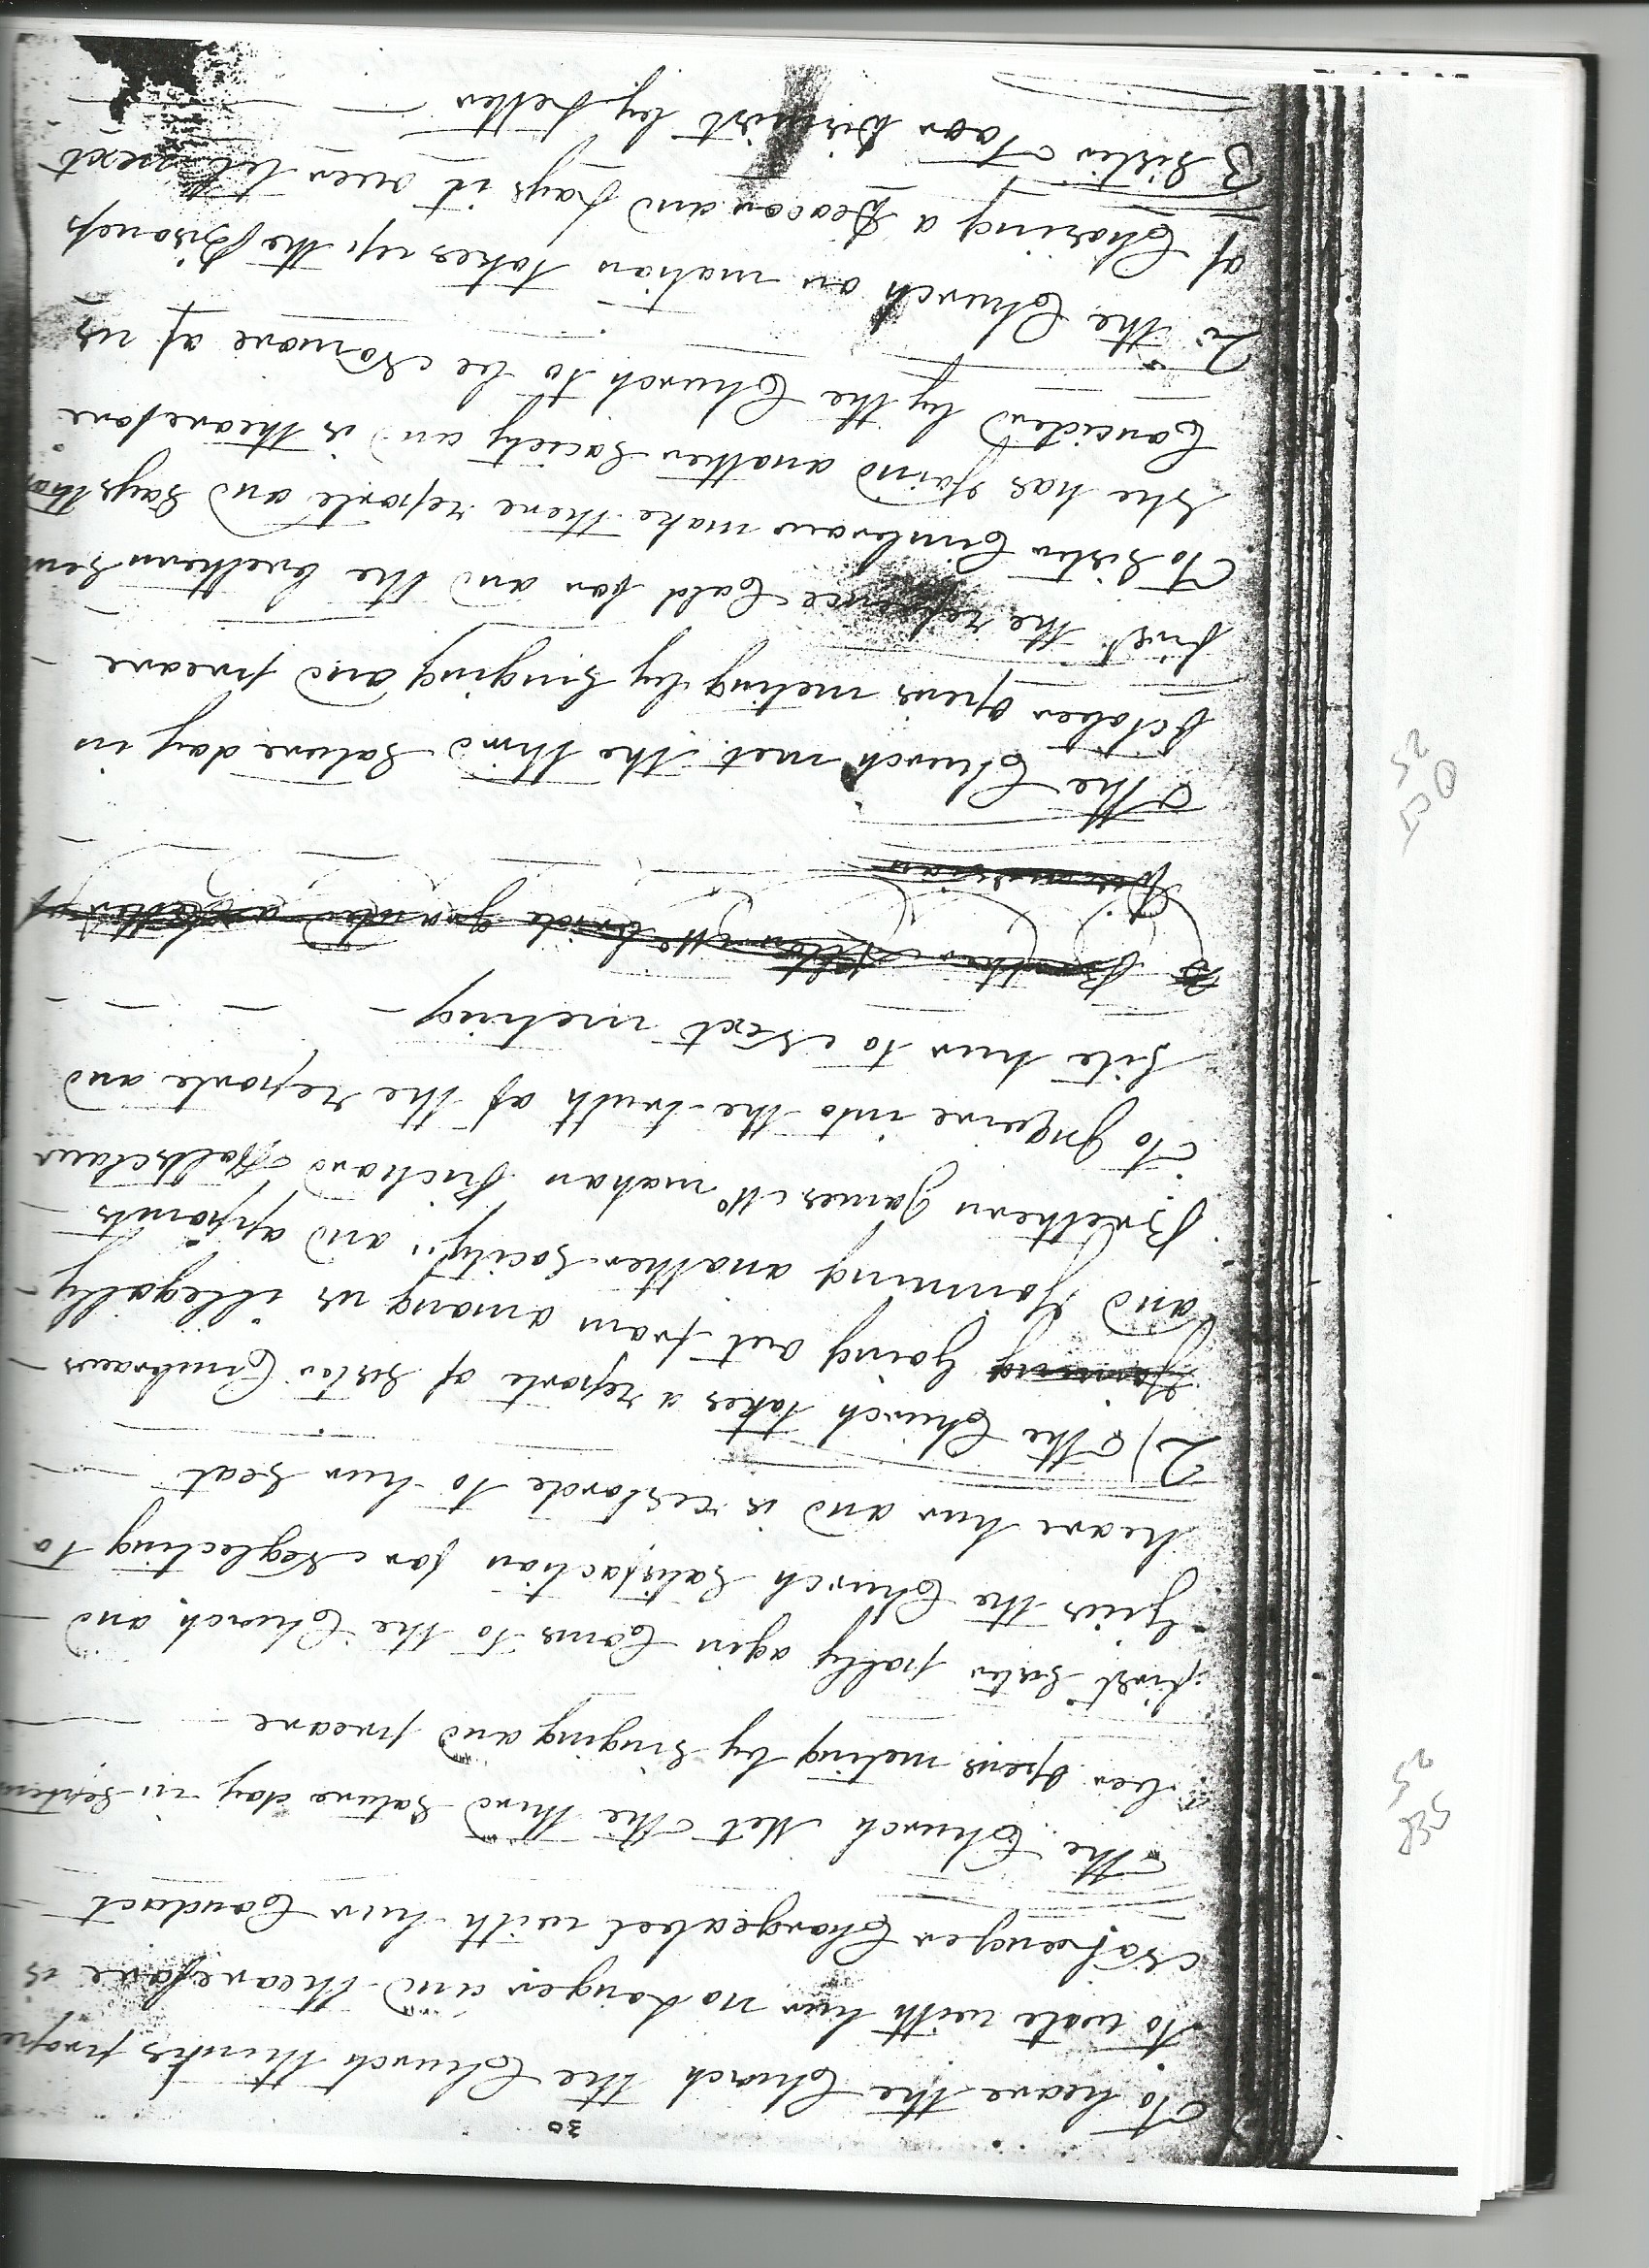 30
To heare the Church the Church thinks prope
to wate with hur no Longer and thearefore is
No Longer Chargeabel with hur Conduct
The Church Met the third Sature day in Septem
SEP 25
ber opens meting by Singing and preare
first Sister polly agin Coms to the Church and
Gives the Church Satisfaction for Neglecting to
heare hur and is restorde to hur Seat
2) The Church takes a reporte of Sister Embraws
going out from among us illegally
and Joining another Society and appoints
Bretheren James Mc mahan Richard
To Inqueire into the truth of the reporte and
Site hur to Next meting
Brother granted a Letter of
Dismission
The Church met the third Sature day in
OCT 25
October opens meting by Singing and preare
first the refrence Cald for and the bretheren Sent
To Sister Embraws make there reporte and Says that
She has Joind another Society and is thearefore
Concidered by the Church to be No more of us
2 the Church on motion takes up the Bisness
of Chosing a Deacon and Lays it over till next
3 Sister dismist by Letter